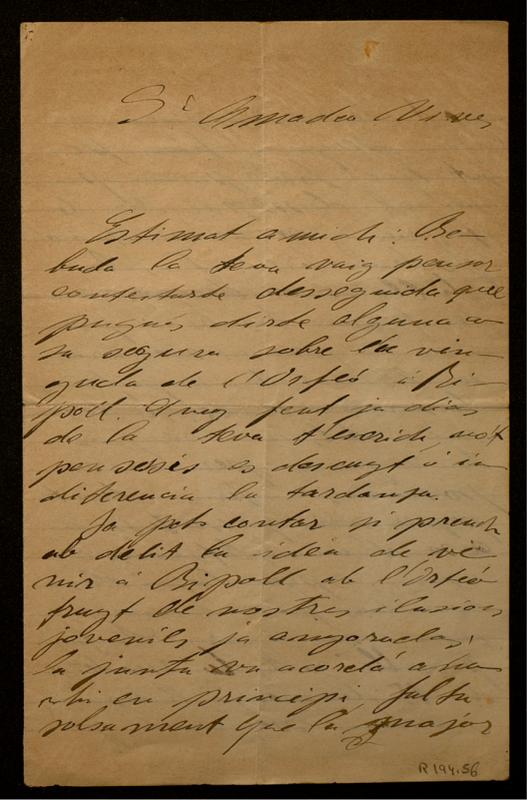 Sr Amadeo Vives
Estimat amich: Re-
buda la teva vaig pensar
contestarte desseguida que
pugués dirte alguna co
sa segura sobre la vin-
guda de l'Orfeó á Ri-
poll. Avuy fent ja dias
de la teva t'escrich, no't
pensesis es descuyt ó in
diferencia la tardansa.
Ja pots contar si prench
ab delit la idéa de ve
nir á Ripoll ab l'Orfeó
fruyt de nostres ilusions
jovenils ja anyoradas;
la junta va acordá
en principi, falta
solsament que la major
R 194.56